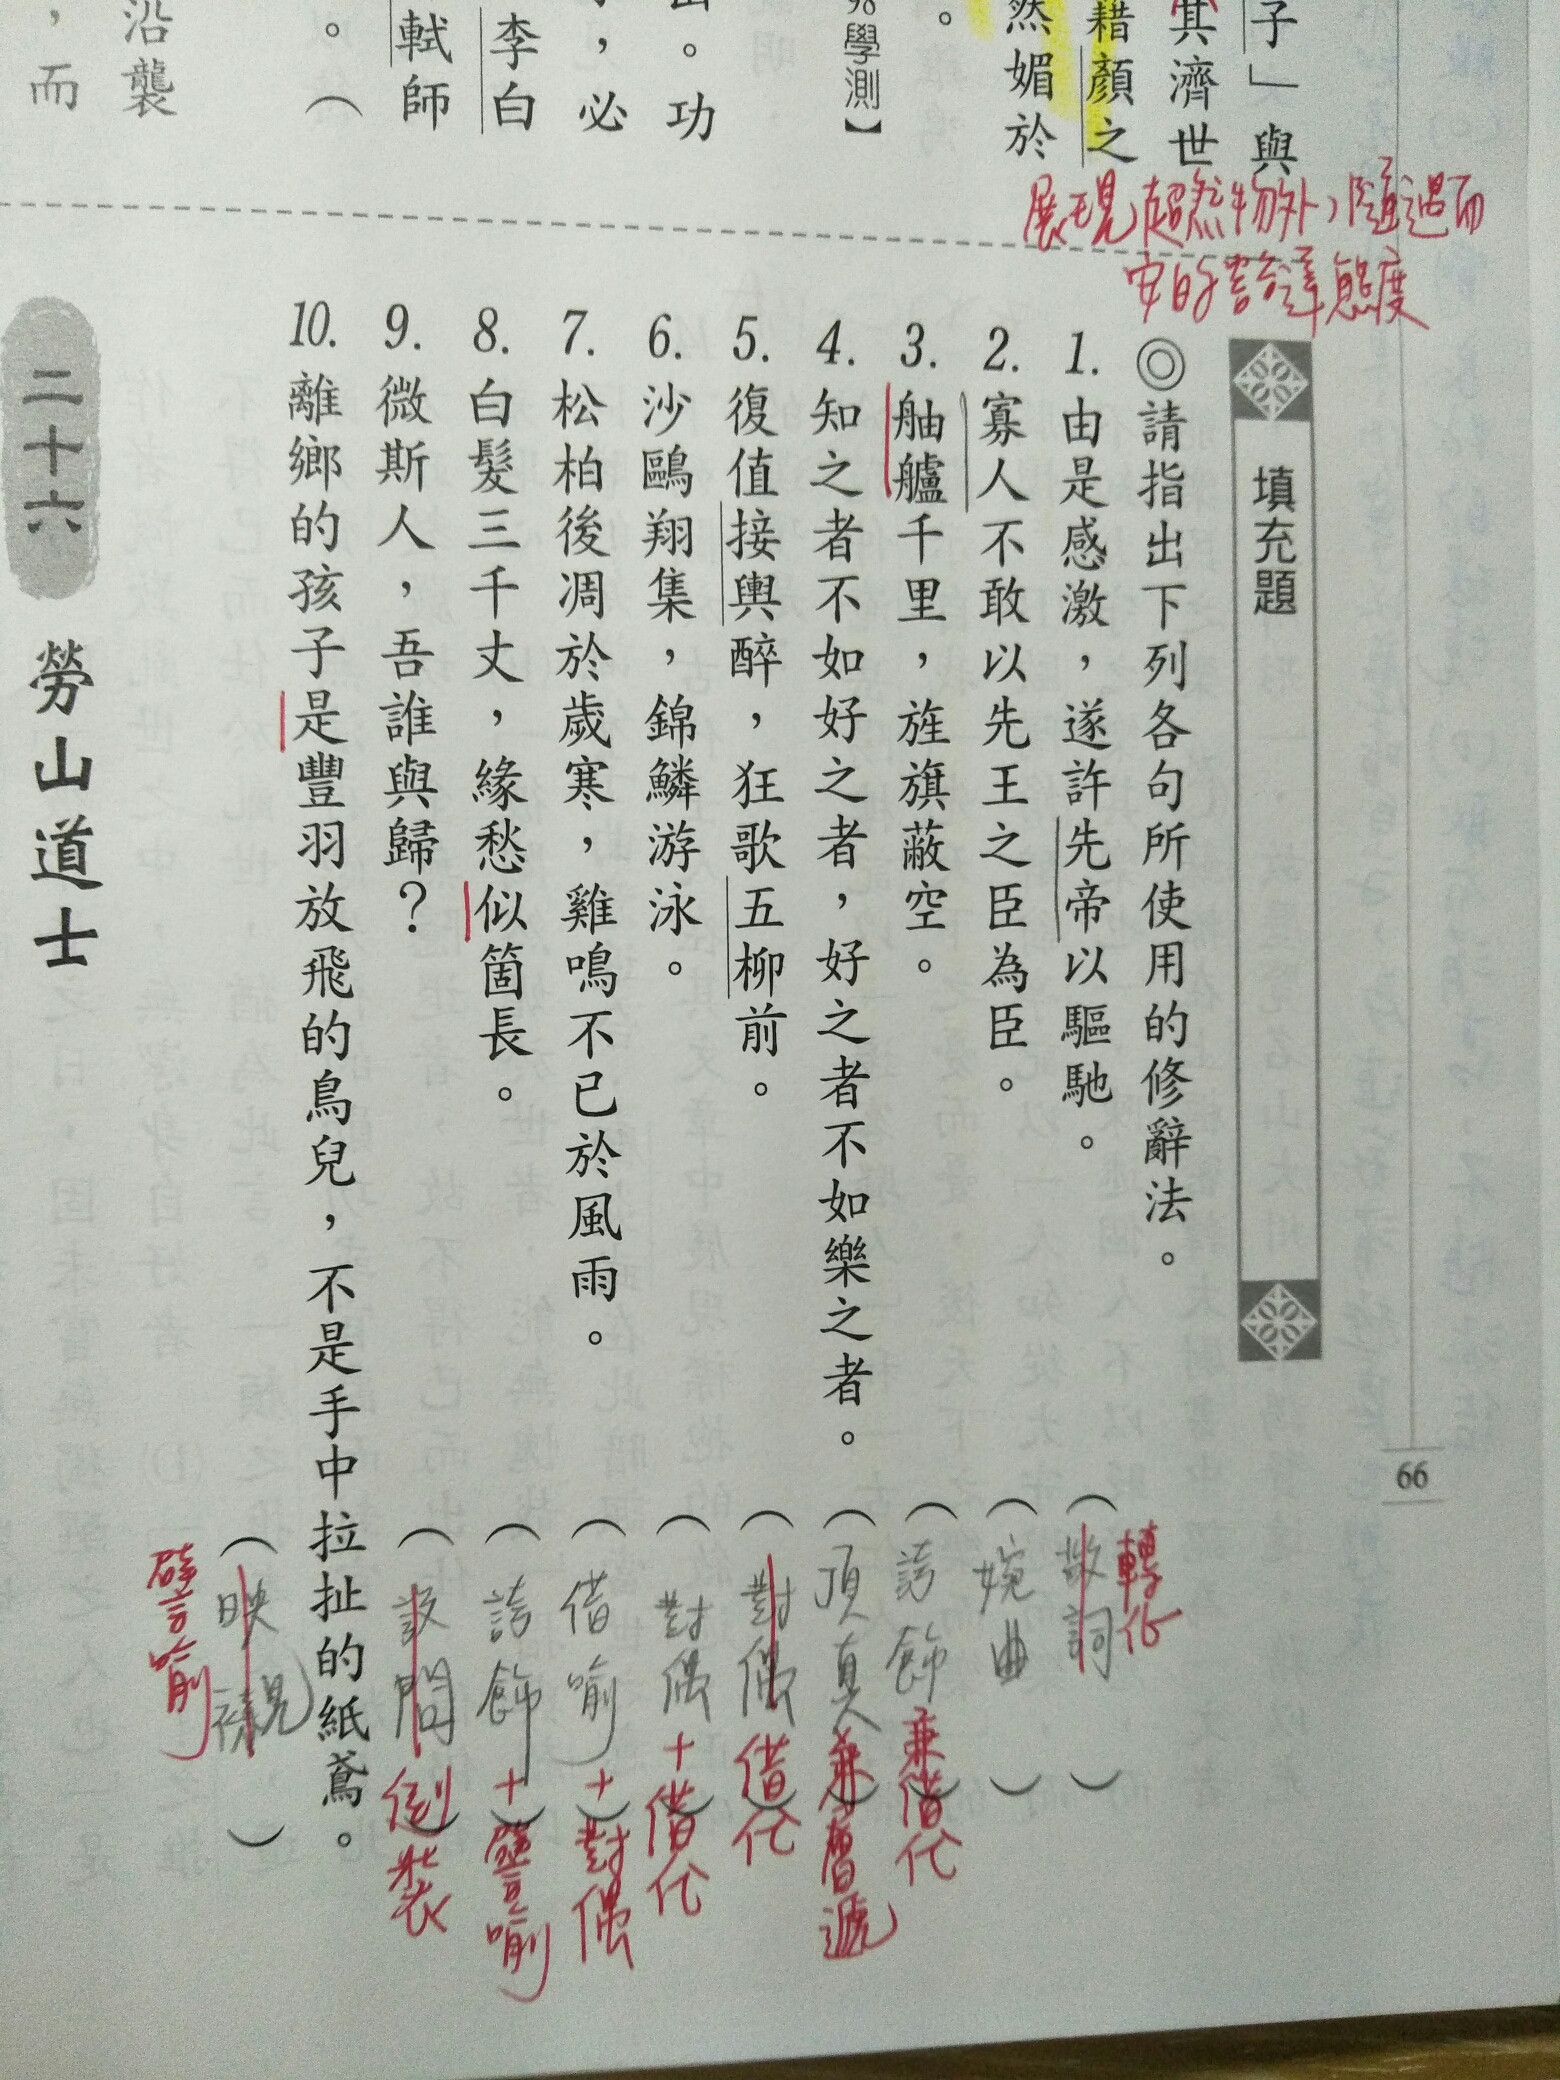 子」與
其濟世
藉顏之
然媚於
。
學測】
。功
，必
李白
軾師
。（
沿襲
，而
展現超然物外，隨遇而
安的豁達態度
66
填充題
◎請指出下列各句所使用的修辭法。
1. 由是感激，遂許先帝以驅馳。（敬詞）轉化
2. 寡人不敢以先王之臣為臣。（婉曲）
3. 舳艫千里，旌旗蔽空。（誇飾兼借代）
4. 知之者不如好之者，好之者不如樂之者。（頂真兼層遞）
5. 復值接輿醉，狂歌五柳前。（對偶借代）
6. 沙鷗翔集，錦鱗游泳。（對偶＋借代）
7. 松柏後凋於歲寒，雞鳴不已於風雨。（借喻＋對偶）
8. 白髮三千丈，緣愁似箇長。（誇飾＋譬喻）
9. 微斯人，吾誰與歸？（設問倒裝）
10. 離鄉的孩子是豐羽放飛的鳥兒，不是手中拉扯的紙鳶。（映襯）譬喻
二十六 勞山道士